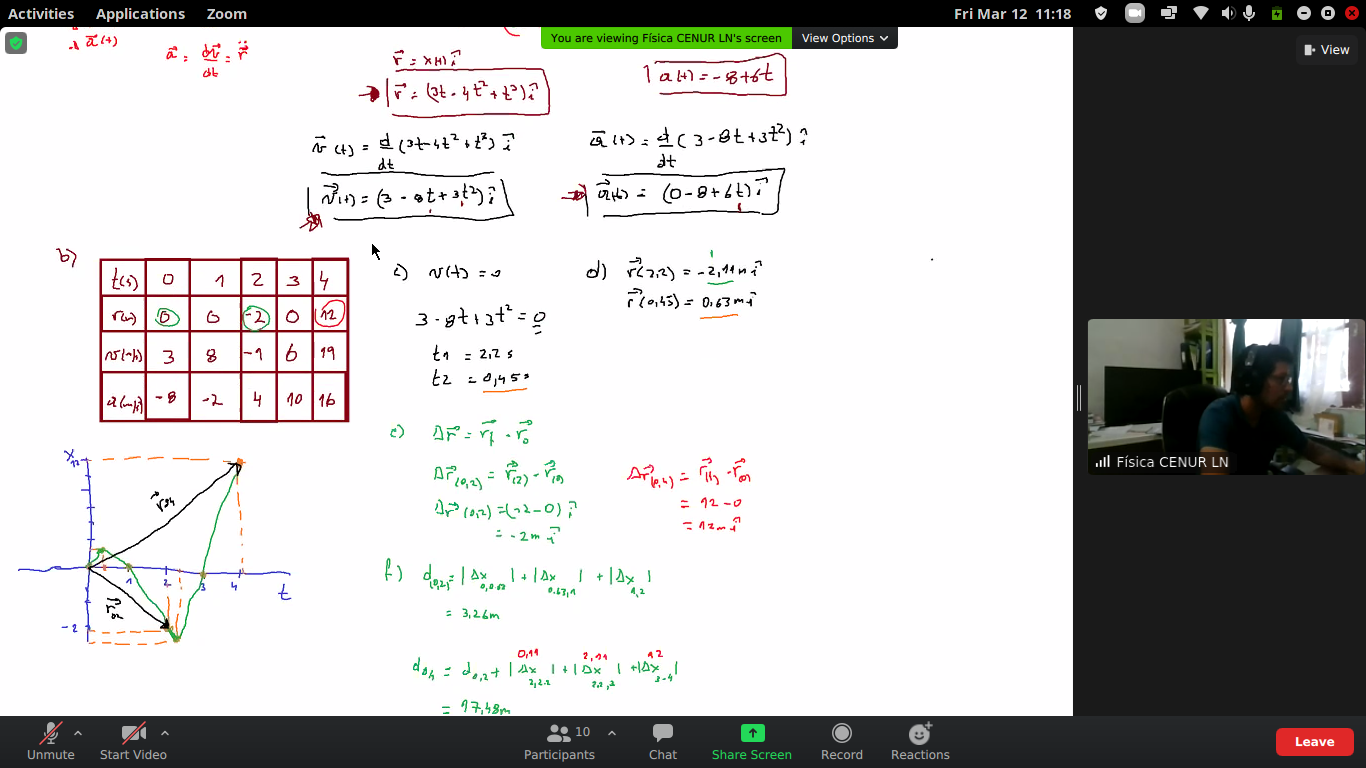 Activities Applications Zoom Fri Mar 12 11:18
You are viewing Física CENUR LN's screen View Options
View
a(t)
a = dv/dt = r
r = x(t) i
r = (3t - 4t² + t³) i
a(t) = -8+6t
v(t) = d/dt (3t-4t² + t³) i
a(t) = d/dt (3-8t+3t²) i
v(t) = (3 - 8t + 3t²) i
a(t) = (0-8+6t) i
b)
t(s) 0 1 2 3 4
r(m) 0 0 -2 0 12
v(m/s) 3 8 -1 6 19
a(m/s²) -8 -2 4 10 16
c) v(t) = 0
3-8t+3t² = 0
t1 = 2,2 s
t2 = 0,45 s
d) r(2,2) = -2,11 m i
r(0,45) = 0,63 m i
e) Δr = rf - r0
Δr(0,2) = r(2) - r(0)
Δr(0,2) = (-2-0) i
= -2m i
Δr(0,4) = r(4) - r(0)
= 12-0
= 12m i
f) d(0,2) = |Δx 0,0.63| + |Δx 0.63,1| + |Δx 1,2|
= 3,26m
0,11 2,11 12
d0,4 = d0,2 + |Δx 2,2.2| + |Δx 2.2,3| + |Δx 3-4|
= 17,48m
x
12
r04
1 2 3 4 t
r02
-2
Física CENUR LN
Unmute Start Video Participants 10 Chat Share Screen Record Reactions Leave